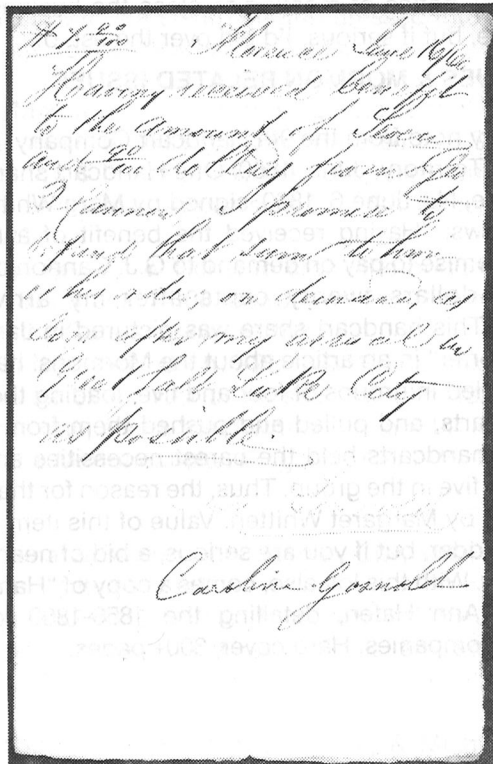 7 90/100 Florence June
Having received benefit
to the amount of Seven
and 90/100 dollars from
I promise to
that sum to him
or his order, on demand, as
soon after my arrival in
Great Salt Lake City
as possible.
Caroline Gosnold